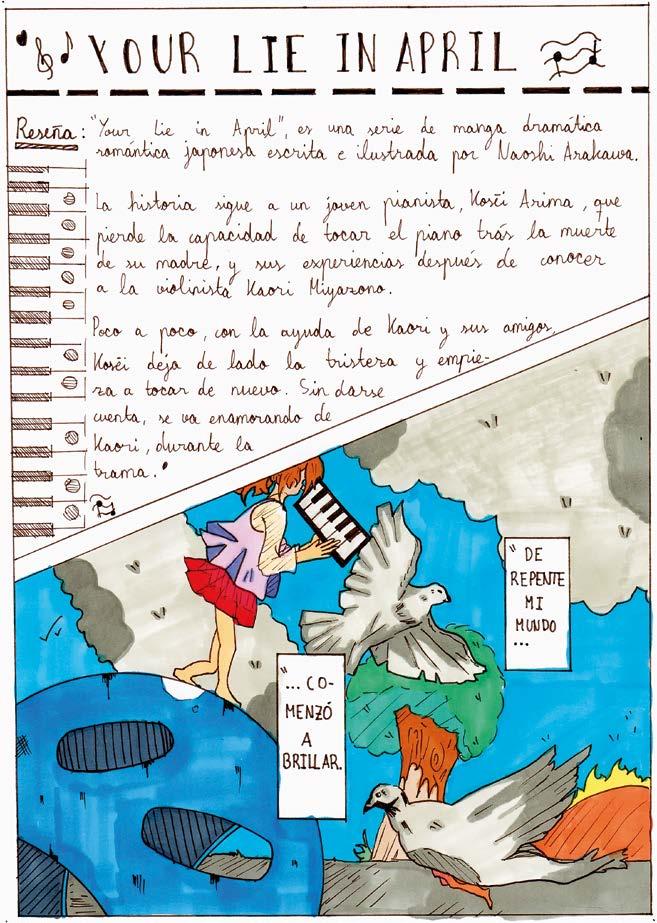 YOUR LIE IN APRIL
Reseña: "Your Lie in April", es una serie de manga dramática
romántica japonesa escrita e ilustrada por Naoshi Arakawa.
La historia sigue a un joven pianista, Kosēi Arima, que
pierde la capacidad de tocar el piano trás la muerte
de su madre, y sus experiencias después de conocer
a la violinista Kaori Miyazono.
Poco a poco, con la ayuda de Kaori y sus amigos,
Kosēi deja de lado la tristeza y empie-
za a tocar de nuevo. Sin darse
cuenta, se va enamorando de
Kaori, durante la
trama.
"DE
REPENTE
MI
MUNDO
...
"...CO-
MENZÓ
A
BRILLAR.